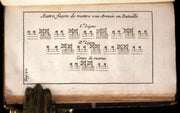 Autre façon de mettre une Armée en Bataille
1.e Ligne
2.e Ligne
Corps de reserve